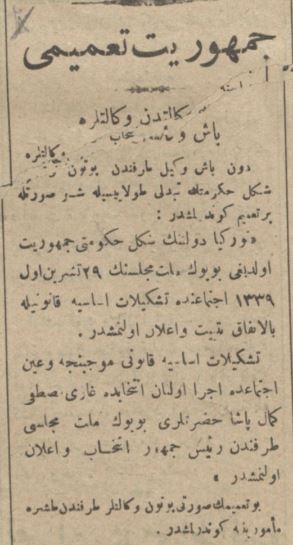 جمهوریت تعمیمی
وكالتدن وكالتلره
باش و
دون باش وكیل طرفندن بوتون وكالتلره
شكل حكومتك تبدلی طولاییسیله شو صورتله
بر تعمیم كوندرلمشدر :
«توركیا دولتنك شكل حكومتی جمهوریت
اولدیغی بویوك ملت مجلسنك ٢٩ تشرین اول
١٣٣٩ اجتماعنده تشكیلات اساسیه قانونیله
بالاتفاق تثبیت و اعلان اولنمشدر .
تشكیلات اساسیه قانونی موجبنجه و عین
اجتماعده اجرا اولنان انتخابده غازی مصطفی
كمال پاشا حضرتلری بویوك ملت مجلسی
طرفندن رئیس جمهور انتخاب و اعلان
اولنمشدر »
بو تعمیمك صورتی بوتون وكالتلر طرفندن طشره
مأمورینه كوندرلمشدر .